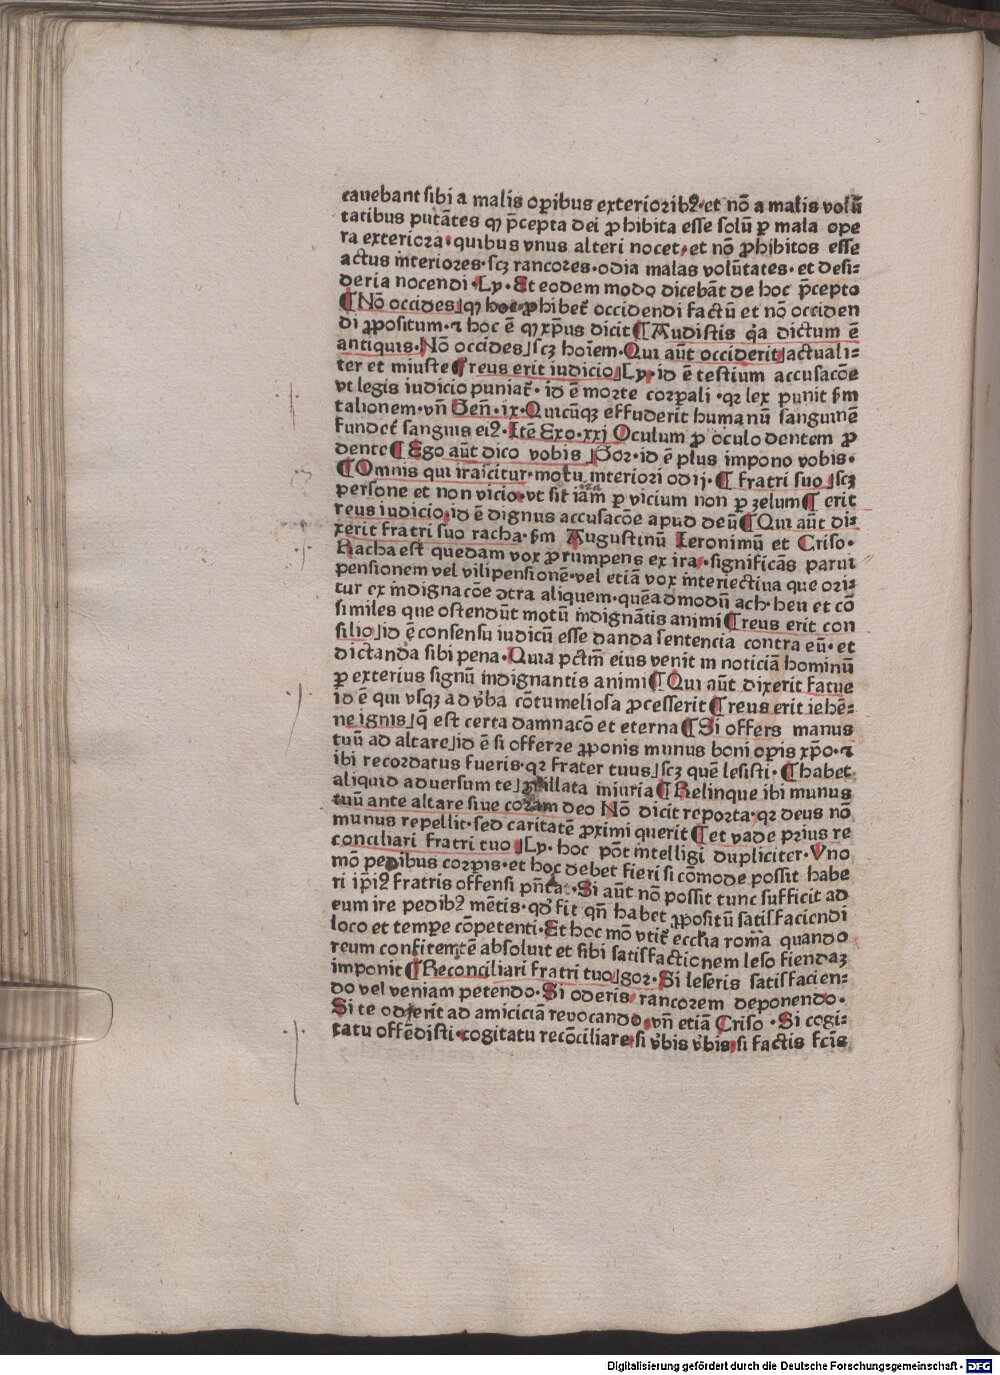 cauebant sibi a malis op̄ibus exteriorib⁹·et nō a malis volū
tatibus putātes ꝙ p̄cepta dei ꝓhibita esse solū ꝑ mala ope
ra exteriora·quibus vnus alteri nocet·et nō ꝓhibitos esse
actus īnteriores·scꝫ rancores·odia malas volūtates·et desi⸗
deria nocendi·Ly·Et eodem modo dicebāt de hoc p̄cepto
¶Nō occides⌋ꝙ hoc ꝓhibet̄ occidendi factū et nō occiden
di ꝓpositum·⁊ hoc ē ꝙ xp̄us dicit ¶Audistis q̓a dictum ē
antiquis·Nō occides⌋scꝫ hoīem·Qui aūt occiderit⌋actuali⸗
ter et iniuste ¶reus erit iudicio⌋Ly·id ē testium accusacōe
vt legis iudicio puniat̄·id ē morte corꝑali·qꝛ lex punit ẜm
talionem·vn̄ Gen̄·ix·Quicūqꝫ effuderit humanū sanguinē
fundet̄ sanguis ei⁹·Itē Exo·xxj Oculum ꝓ oculo dentem ꝓ
dente ¶Ego aūt dico vobis⌋Gor·id ē plus impono vobis·
¶Omnis qui irascitur·motu interiori odij·¶fratri suo⌋scꝫ
persone et non vicio·vt sit iam̄ ꝑ vicium non ꝑ zelum ¶erit
reus iudicio·id ē dignus accusacōe apud deū ¶Qui aūt di⸗
xerit fratri suo racha·ẜm Augustinū Ieronimū et Criso·
Racha est quedam vox ꝓrumpens ex ira·significās parui
pensionem vel vilipensionē·vel etiā vox īnteriectiua que ori⸗
tur ex īndignacōe ↄtra aliquem·quēadmodū ach·heu et cō
similes que ostendūt motū īndignātis animi ¶reus erit con
silio⌋id ē consensu iudicū esse danda sentencia contra eū·et
dictanda sibi pena·Quia pctm̄ eius venit in noticiā hominū
ꝑ exterius signū indignantis animi ¶Qui aūt dixerit fatue
id ē qui vsqꝫ ad v̓ba cōtumeliosa ꝓcesserit ¶reus erit iehē⸗
ne ignis⌋q̄ est certa damnacō et eterna ¶Si offers manus
tuū ad altare⌋id ē si offerre ꝓponis munus boni opis xp̄o·⁊
ibi recordatus fueris·qꝛ frater tuus⌋scꝫ quē lesisti·¶habet
aliquid aduersum te⌋ illata iniuria ¶Relinque ibi munus
tuū ante altare siue coram deo Nō dicit reporta·qꝛ deus nō
munus repellit·sed caritatē ꝓximi querit ¶et vade prius re
conciliari fratri tuo⌋Ly·hoc pōt intelligi dupliciter·Vno
mō pedibus corꝑis·et hoc debet fieri si cōmode possit habe
ri ip̄i⁹ fratris offensi pn̄ta·Si aūt nō possit tunc sufficit ad
eum ire pedib⁹ mētis·qd̓ fit qn̄ habet ꝓpositū satisfaciendi
loco et tempe cōpetenti·Et hoc mō vtit̄ eccl̄ia romana quando
reum confitentē absoluit et sibi satisfactionem leso fiendaꝫ
imponit ¶Reconciliari fratri tuo⌋gor·Si leseris satisfacien⸗
do vel veniam petendo·Si oderis rancorem deponendo·
Si te oderit ad amiciciam reuocando·vn̄ etiā Criso·Si cogi⸗
tatu offēdisti·cogitatu recōciliare·si v̓bis v̓bis·si factis fc̄is
Digitalisierung gefördert durch die Deutsche Forschungsgemeinschaft - DFG